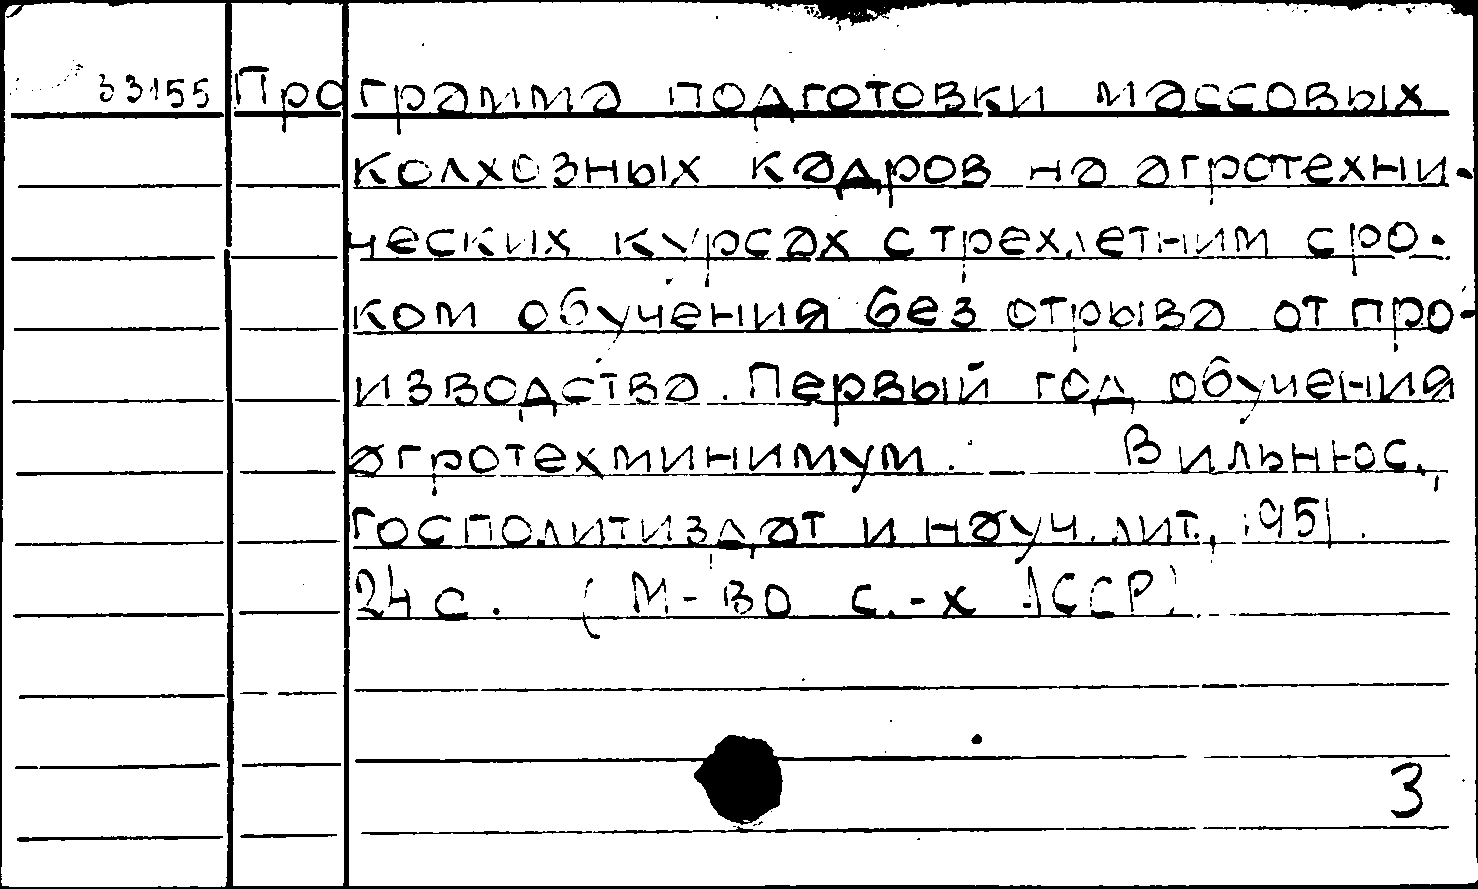 33155 Программа подготовки массовых
колхозных кадров на агротехни-
ческих курсах с трехлетним сро-
ком обучения без отрыва от про-
изводства. Первый год обучения
агротехминимум. Вильнюс,
Госполитиздат и науч. лит., 1951.
24 с. (М-во с.-х ЛССР)
3